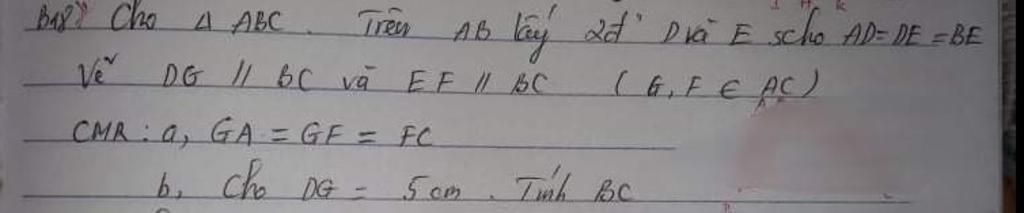 Bài 8: Cho Δ ABC. Trên AB lấy 2đ' D và E scho AD=DE=BE
Vẽ DG // BC và EF // BC (G, F ∈ AC)
CMR: a, GA = GF = FC
b, Cho DG = 5cm. Tính BC